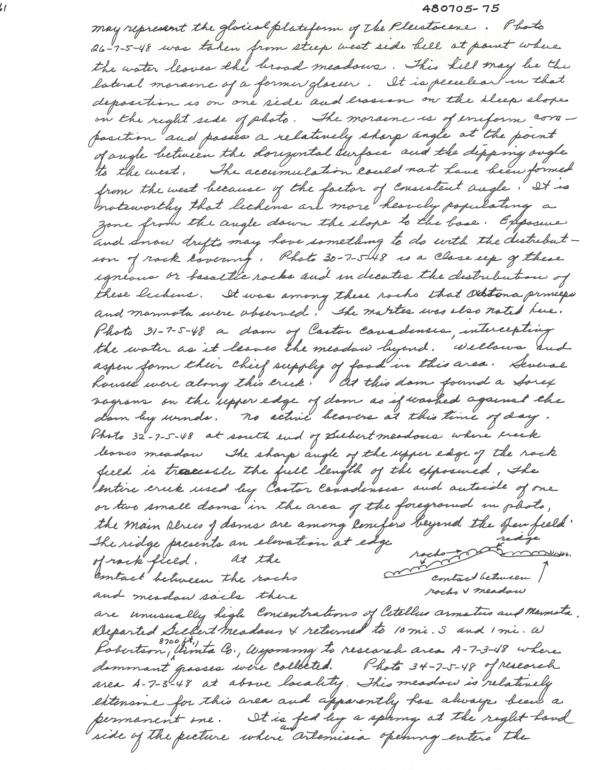 61
480705-75
may represent the glacial plateform of the Pleistocene. Photo
26-7-5-48 was taken from steep west side hill at point where
the water leaves the broad meadows. This hill may be the
lateral moraine of a former glacier. It is peculear in that
deposition is on one side and erosion on the steep slope
on the right side of photo. The moraine is of uniform com-
position and passes a relatively sharp angle at the point
of angle between the horizontal surface and the dipping angle
to the west. The accumulation could not have been formed
from the west because of the factor of consistent angle. It is
noteworthy that lichens are more heavely populating a
zone from the angle down the slope to the base. Exposure
and snow drifts may have something to do with the distribut-
ion of rock covering. Photo 30-7-5-48 is a close up of these
igneous or basaltic rocks and indicates the distribution of
these lichens. It was among these rocks that Ochtona princeps
and marmota were observed. The martes was also noted here.
Photo 31-7-5-48 a dam of Castor canadensis, intercepting
the water as it leaves the meadow beyond. Willows and
aspen form their chief supply of food in this area. Several
houses were along this creek. At this dam found a Sorex
vagrans on the upper edge of dam as if washed against the
dam by winds. No active beavers at this time of day.
Photo 32-7-5-48 at south end of Gilbert meadows where creek
leaves meadow The sharp angle of the upper edge of the rock
field is traceable the full length of the exposured. The
entire creek used by Castor canadensis and outside of one
or two small dams in the area of the foreground in photo,
the main series of dams are among conifers beyond the open field.
The ridge presents an elevation at edge
of rock field. At the
contact between the rocks
and meadow soils there
ridge
rocks
contact between
rocks & meadow
are unusually high concentrations of Citellus armatus and Marmota.
Departed Gilbert Meadows & returned to 10 mi. S and 1 mi. W
Robertson, 8700 ft., Uinta Co., Wyoming to research area A-7-3-48 where
dominant grasses were collected. Photo 34-7-5-48 of research
area A-7-3-48 at above locality. This meadow is relatively
extensive for this area and apparently has always been a
permanent one. It is fed by a spring at the right hand
side of the picture where an Artemisia opening enters the